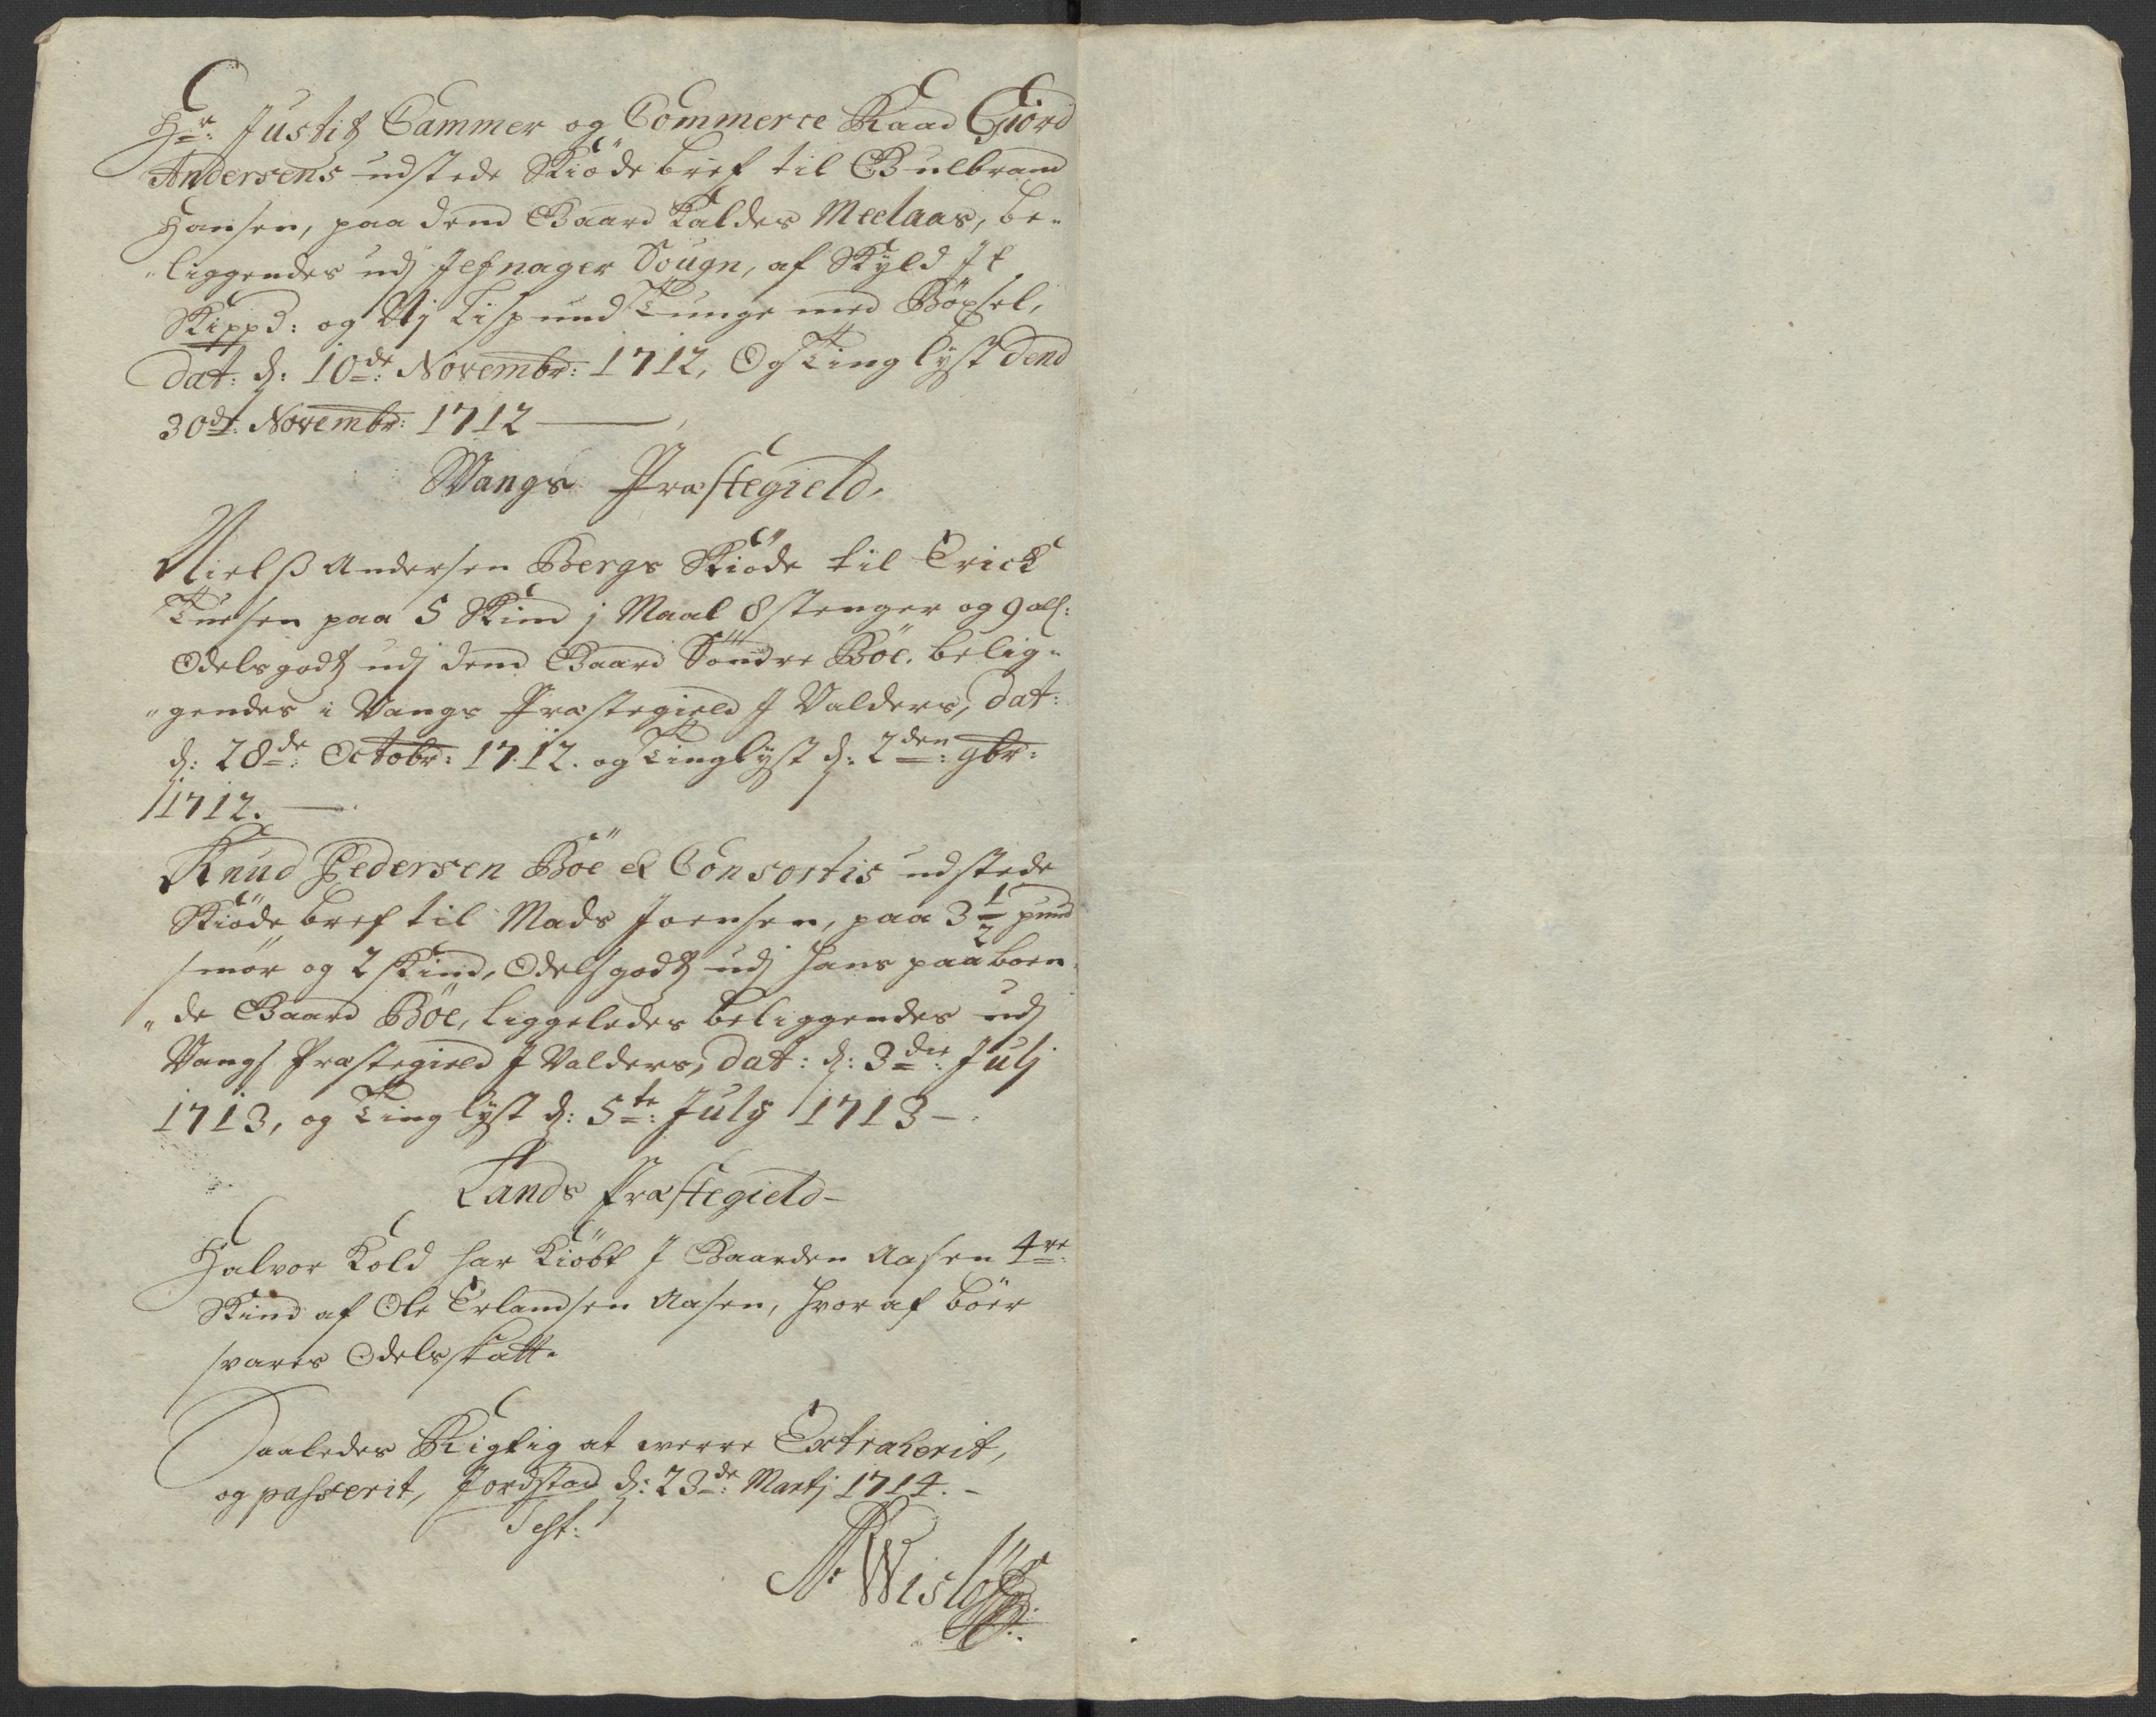 Hr: Justitz Cammer og Commerce Raad Giord
Andersens udstede Skiöde bref til Gulbrand
Hansen, paa dend Gaard kaldes Meelaas, be-
"liggendes udj Jefnager Sougn, af Skyld It
Skippd: og Vj Lispund Tunge med Böxsel,
dat: d: 10de: Novembr: 1712, Og Tinglyst dend
30dt: Novembr: 1712 ———
Wangs Præstegield.
Nielß Andersen Bergs Skiöde til Erick
Tuesen paa 5 Skind j Maal 8 stenger og 9 all:
Odelsgodtz udj dend Gaard Söndre Böe, belig-
"gendes i Vangs Præstegield J Valders, dat:
d: 28de: Octobr: 1712. og Tinglyst d: 2den: 9br:
1712. —
Knud Pedersen Böe et Consortis udstede
Skiöde bref til Mads Joensen, paa 3 1/2 pund
smör og 2 skind, Odelsgodtz udj hans paaboen-
"de Gaard Böe, liggeledes beliggendes udj
Vangs Præstegield J Valders, dat: d: 3die: Julj
1713, og Tinglyst d: 5te: July 1713 —
Lands Præstegield —
Halvor Kold har kiöbt J Gaarden Aasen 4re:
Skind af Ole Erlandsen Aasen, hvoraf böer
svares Odelsskatt.
Saaledes Rigtig at werre Extraherit,
og passerit, Jordstad d: 23de: Martj 1714. —
Test:
N: Wislöff